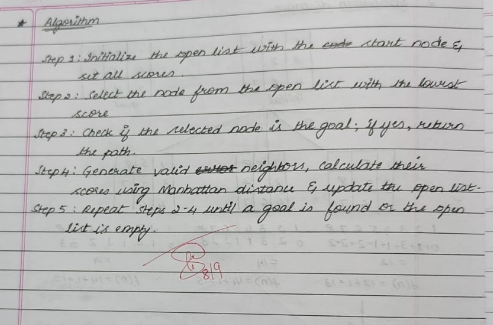 * Algorithm
Step 1: Initialize the open list with the start node &
set all scores.
Step 2: Select the node from the open list with the lowest
score
Step 3: Check if the selected node is the goal; if yes, return
the path.
Step 4: Generate valid neighbors, calculate their
scores using Manhattan distance & update the open list.
Step 5: Repeat steps 2-4 until a goal is found or the open
list is empty.
8/9